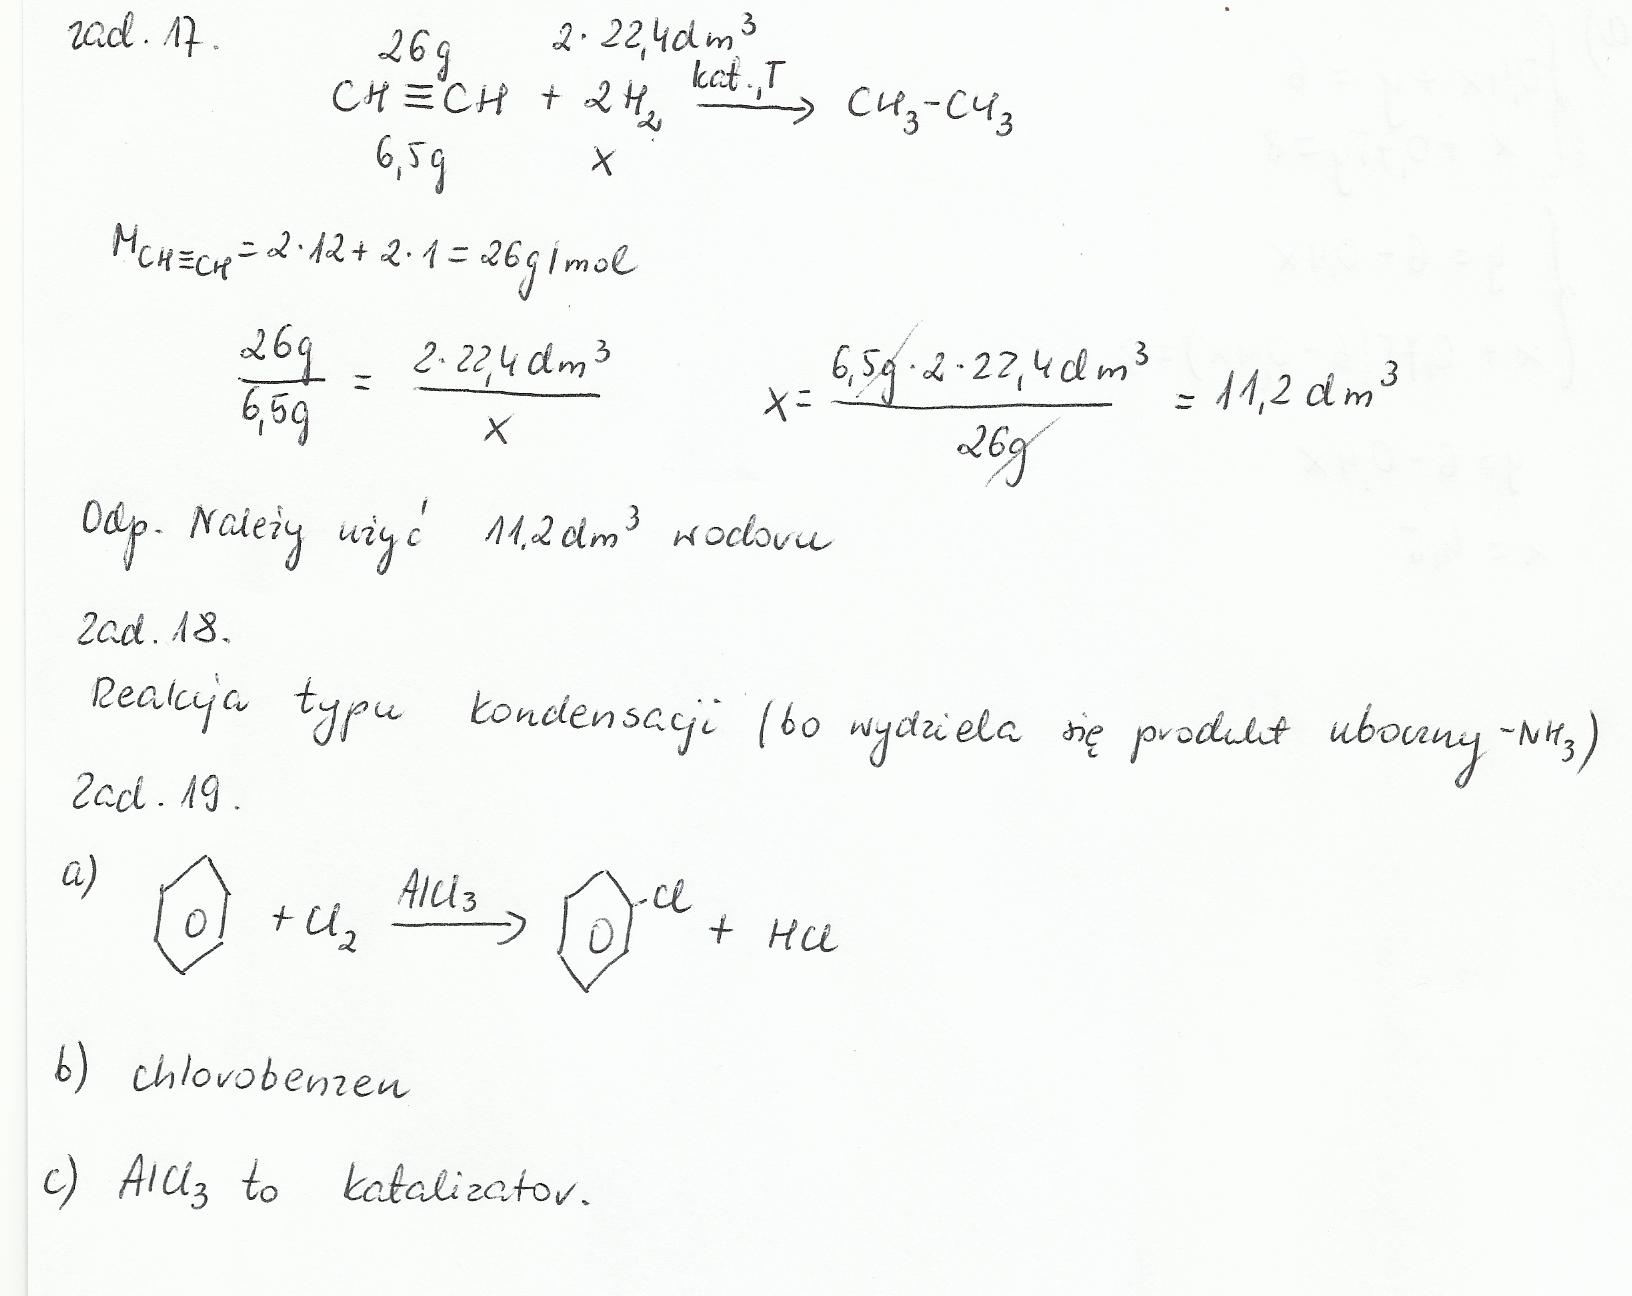 zad. 17.
26g 2·22,4dm³
CH≡CH + 2H₂ kat.,T → CH₃-CH₃
6,5g x
M CH≡CH = 2·12+2·1=26g/mol
26g/6,5g = 2·22,4dm³/x x= 6,5g·2·22,4dm³/26g = 11,2dm³
Odp. Należy użyć 11,2dm³ wodoru
zad. 18.
Reakcja typu kondensacji (bo wydziela się produkt uboczny -NH₃)
zad. 19.
a) + Cl₂ AlCl₃ → -Cl + HCl
b) chlorobenzen
c) AlCl₃ to katalizator.